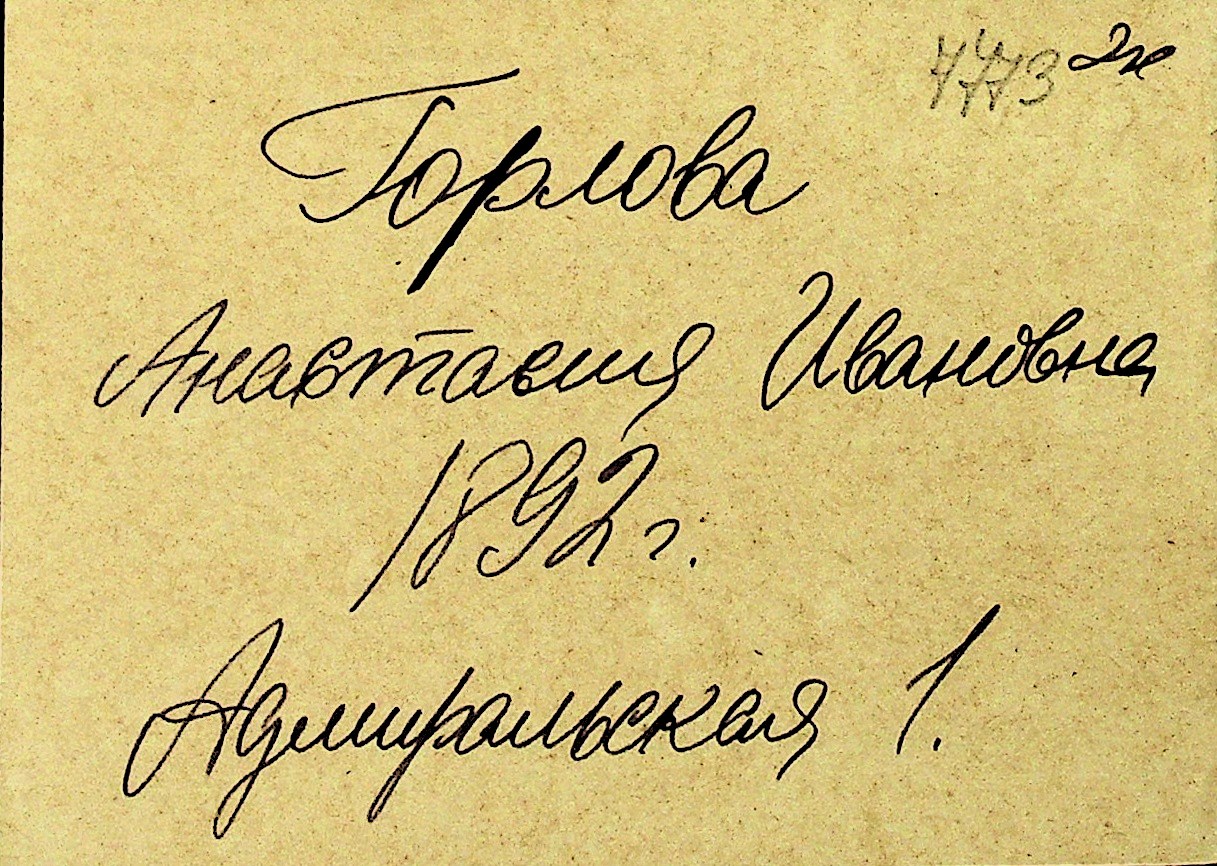 Горлова
Анастасия Ивановна
1892 г.
Адмиральская 1.